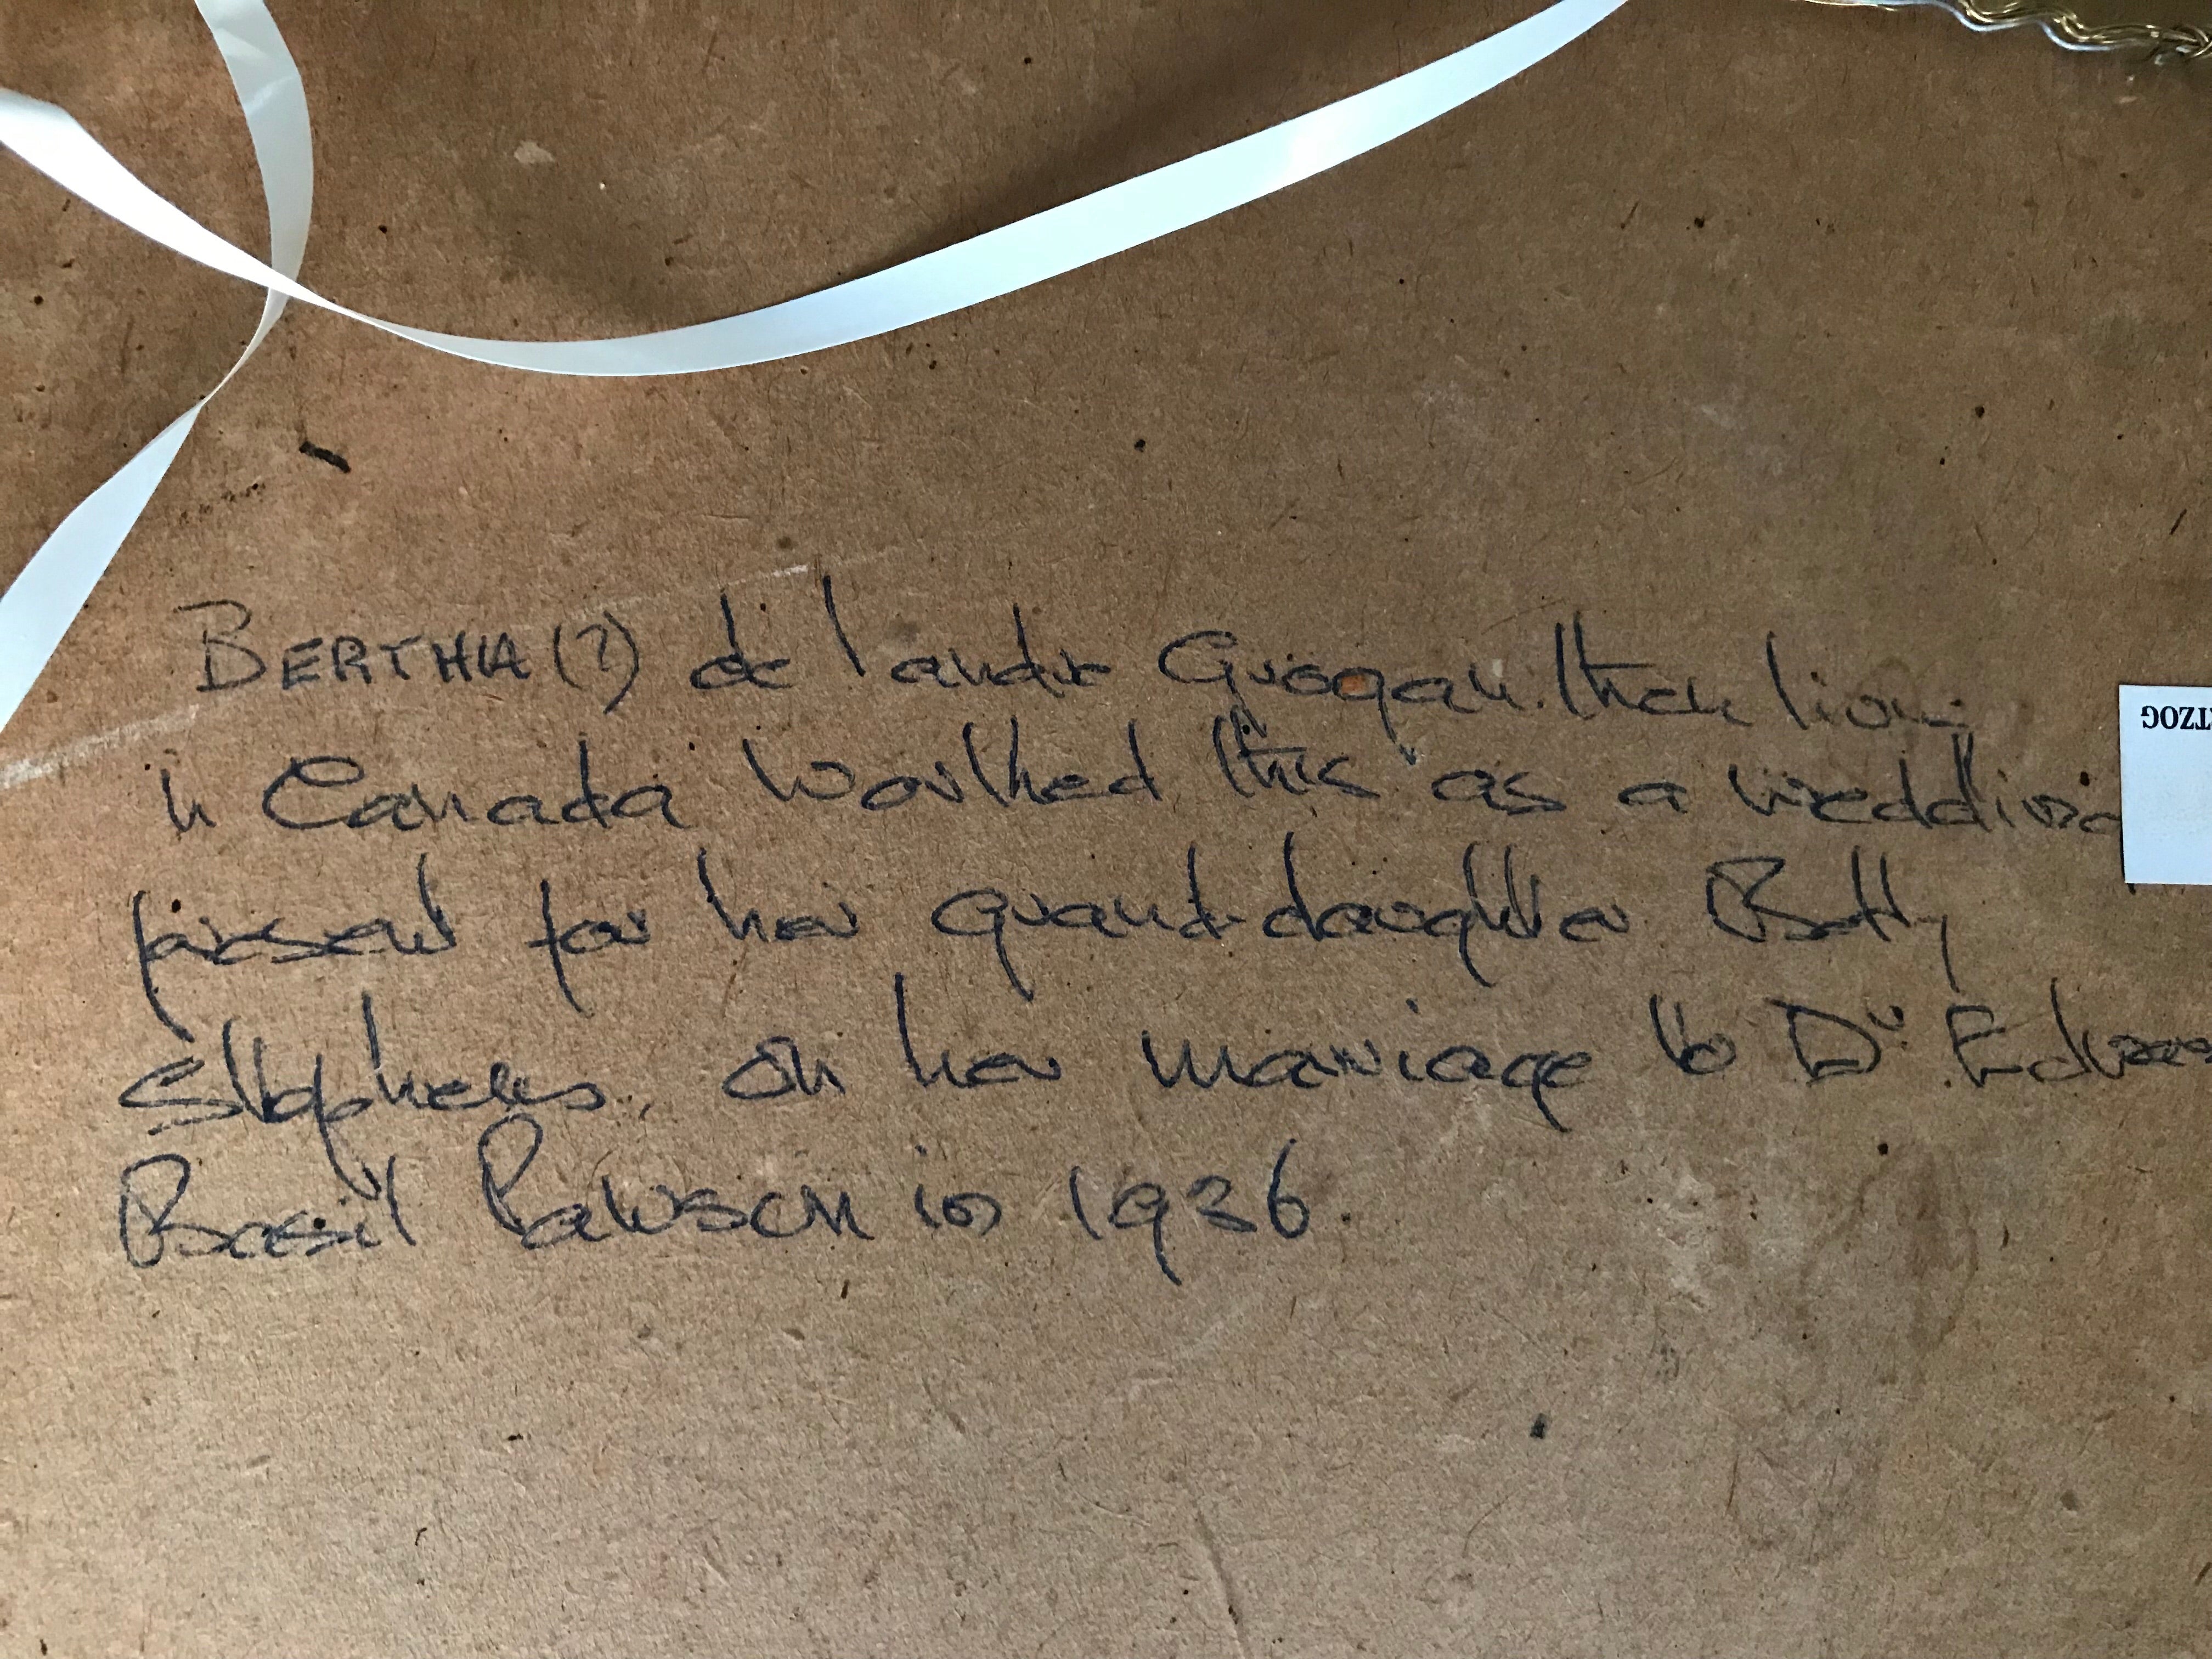 BERTHA (?) de Landre Grogan then living
in Canada worked this as a wedding
present for her grand-daughter Betty
Stephens, on her marriage to Dr Edward
Basil Pawson in 1936
TZOG